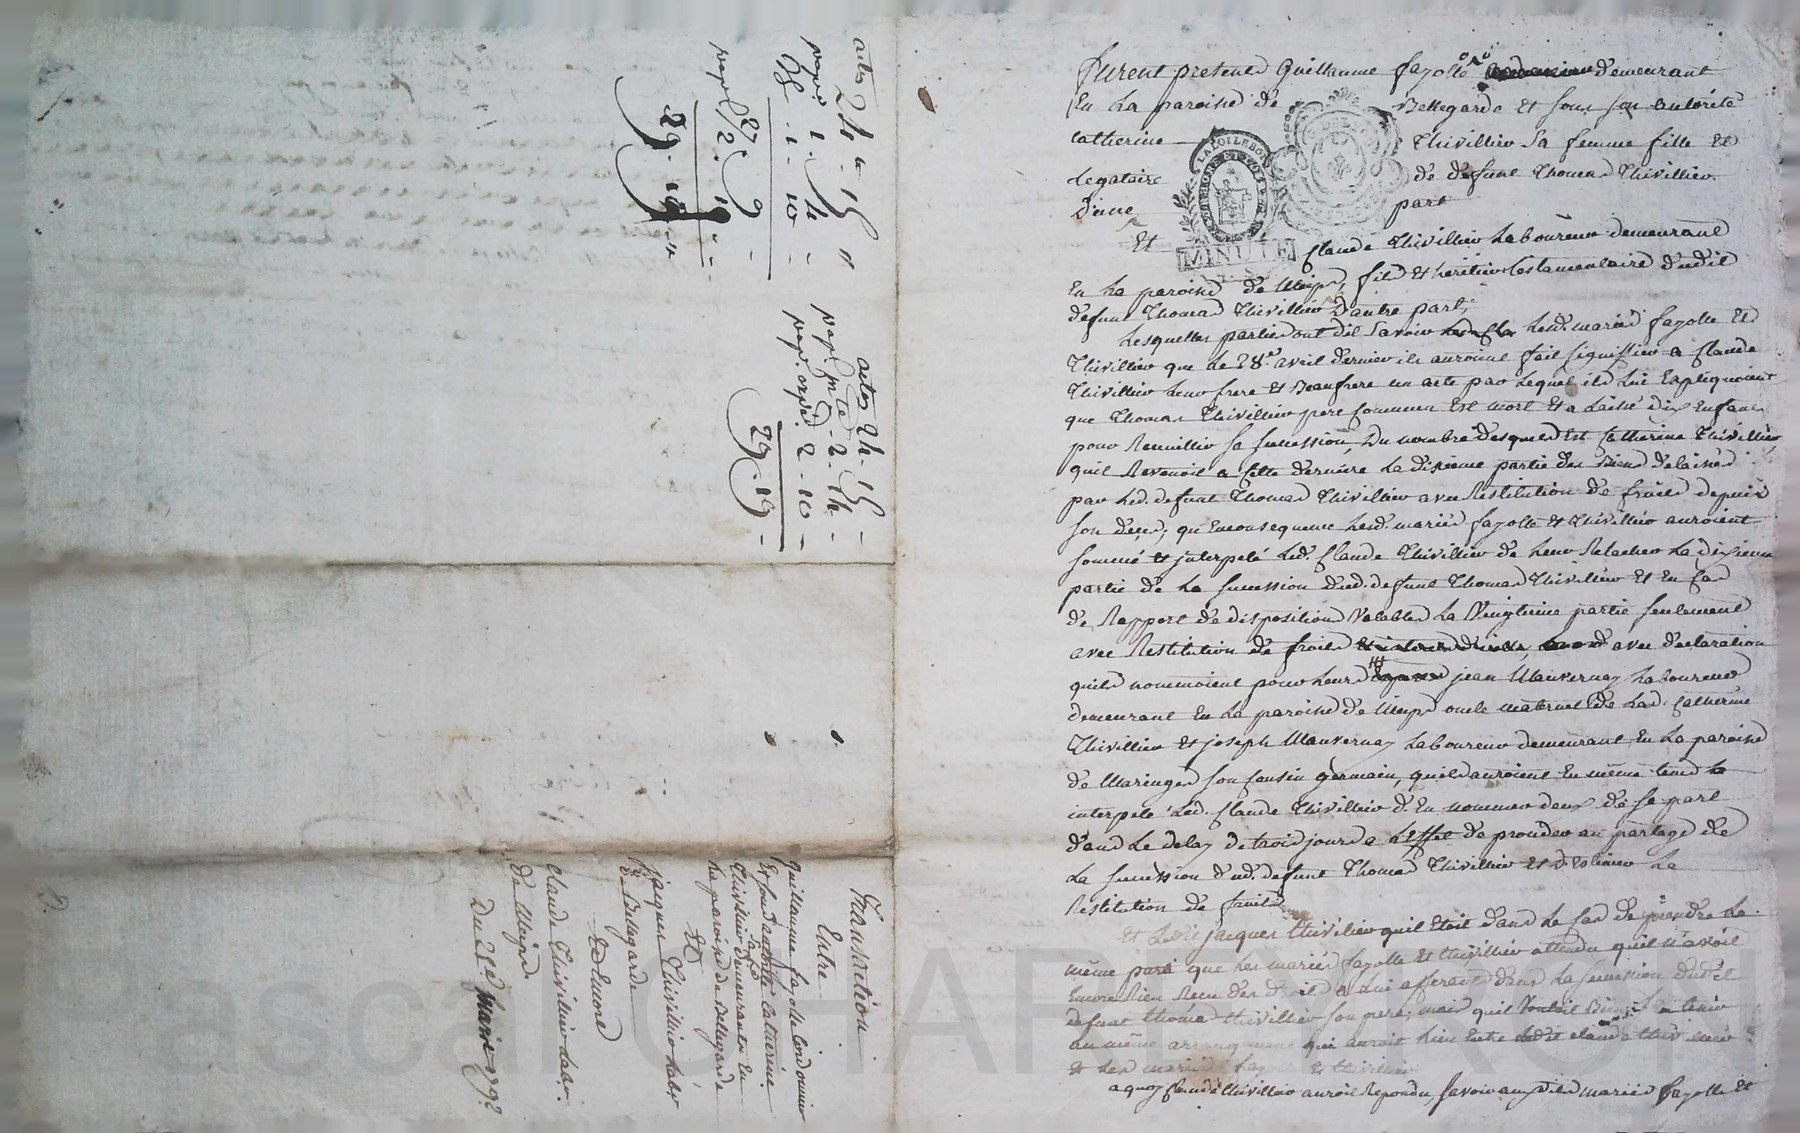 furent presents Guillaume fayolle demeurant
En La paroisse de Bellegarde Et sous son autorité
Catherine Thivillier Sa femme fille Et
Legataire de defunt Thomas Thivillier
D'une part
Et Claude Thivillier Laboureur demeurant
En La paroisse de fils Et heritier testamentaire dudit
defunt Thomas Thivillier d'autre part,
Lesquelles parties ont dit savoir Lesd. mariés fayolle Et
Thivillier que Le 28e avril dernier ils auroient fait signiffier a Claude
Thivillier Leur frere Et Beaufrere un acte par Lequel ils Lui Expliquoient
que Thomas Thivillier pere Commun Est mort Et a Laissé dix Enfans
pour Receuillir sa succession, Du nombre desquels Est Catherine Thivillier
quil Revenoit a Cette derniere La dixieme partie des Biens delaissés
par Led. defunt Thomas Thivillier avec Restitution de fruits depuis
son deces, qu'Enconsequence Lesd. mariés fayolle Et Thivillier auroient
sommé Et jnterpelé Led. Claude Thivillier de Leur Relacher La dixieme
partie de La succession dud. defunt Thomas Thivillier Et En Cas
de Rapport de dispositions Valables La Vingtieme partie seulement
avec Restitution de fruits avec declaration
quils nommoient pour Leurs jean Mauvernay Laboureur
demeurant En La paroisse de oncle maternel de Lad. Catherine
Thivillier Et joseph Mauvernay Laboureur demeurant En La paroisse
de Maringes son Cousin germain, quils auroient En même tems
interpelé Led. Claude Thivillier d'En nommer deux de sa part
dans Le delay de trois jours a L'Effet de proceder au partage de
La succession dud. defunt Thomas Thivillier Et d'Estimer La
Restitution de fruits
Et jacques Thivillier quil Etoit dans Le Cas de prendre Le
même parti que Les mariés fayolle Et thivillier attendu quil n'avoit
Encore Rien Recu des droits a Lui afferants dans La succession dudit
defunt thomas thivillier son pere, mais quil Vouloit Bien tenir
au même arrangement qui auroit Lieu Entre Ledit claude thivillier
Et Les mariés fayolle Et thivillier
a quoy Claude thivillier auroit Repondu, savoir auxdits mariés fayolle Et
MINUTE
actes 24 " 15 "
papr. 1 . 4 "
1 . 10 "
27 . 9 "
papr. 2 . 10 "
29 . 19 "
actes 24 . 15 "
pap. mte 2 . 14 "
pap. expd. 2 . 10 "
29 . 19 "
Transaction
Entre
Guillaume fayolle Cordonnier
Et sous autorité Catherine
Thivillier sa fe demeurants En
La paroisse de Bellegarde
Et
jacques Thivillier Labr
de Bellegarde
Et Encore
Claude Thivillier Labr.
de
Du 21e mars 1792